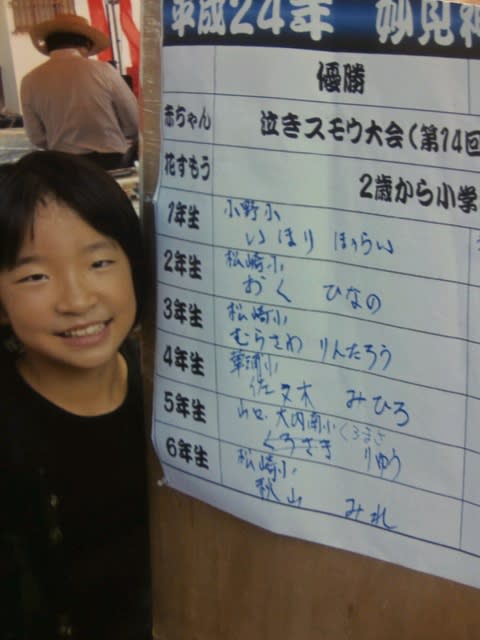 平成24年 妙見神
優勝
赤ちゃん 泣きスモウ大会(第14回
花すもう 2歳から小学
1年生 小野小
いほり ほうらい
2年生 松崎小
おく ひなの
3年生 松崎小
むらさわ りんたろう
4年生 華浦小
佐々木 みひろ
5年生 山口・大内南小 くろさき
くろさき りゅう
6年生 松崎小
秋山 みれ